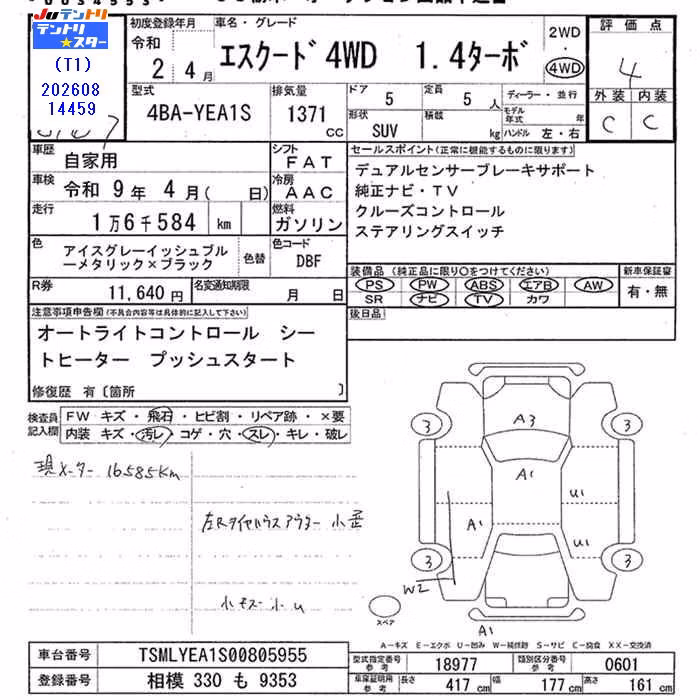 Juテントリ
テントリ★スター
(T1)
202608
14459
初度登録年月
令和
2 年 4 月
車名・グレード
エスクード 4WD 1.4ターボ
2WD
・
4WD
評価点
4
型式
4BA-YEA1S
排気量
1371
CC
ドア
5
定員
5 人
ディーラー・並行
モデル年式 年
形状
SUV
積載
kg
ハンドル 左・右
外装 内装
C C
車歴
自家用
シフト
FAT
車検
令和 9 年 4 月( 日)
冷房
AAC
走行
1万6千584 km
燃料
ガソリン
色
アイスグレーイッシュブル
ーメタリック×ブラック
色替
色コード
DBF
R券
11,640 円
名変通知期限
月 日
セールスポイント(正常に機能するものに限ります)
デュアルセンサーブレーキサポート
純正ナビ・TV
クルーズコントロール
ステアリングスイッチ
装備品(純正品に限り○をつけてください)
PS PW ABS エアB AW
SR ナビ TV カワ
新車保証書
有・無
後日品
注意事項申告欄(不具合内容等は具体的に記入して下さい)
オートライトコントロール シー
トヒーター プッシュスタート
修復歴 有〔箇所 〕
検査員
記入欄
FW キズ・飛石・ヒビ割・リペア跡・×要
内装 キズ・汚レ・コゲ・穴・スレ・キレ・破レ
現メーター 16585km
左Rタイヤハウスアウター 小歪
小キズ 小U
3 A3 3
A1
A1 U1
U1
3 3
W2
A1
スペア
A-キズ E-エクボ U-凹み W-補修跡 S-サビ C-腐食 XX-交換済
車台番号
TSMLYEA1S00805955
登録番号
相模 330 も 9353
型式指定番号
参考
18977
類別区分番号
参考
0601
車庫証明用
参考
長さ
417 cm
幅
177 cm
高さ
161 cm